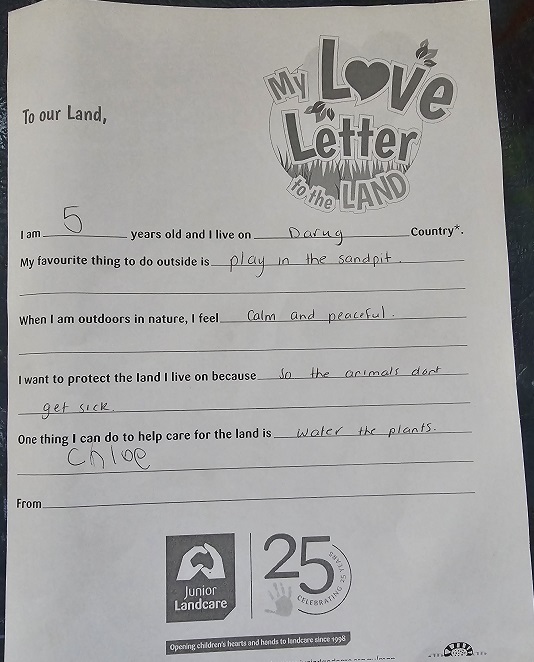 My Love
Letter
to the LAND
To our Land,
I am 5 years old and I live on Darug Country*.
My favourite thing to do outside is play in the sandpit.
When I am outdoors in nature, I feel Calm and peaceful.
I want to protect the land I live on because so the animals dont
get sick.
One thing I can do to help care for the land is water the plants.
Chloe
From
Junior
Landcare
25
CELEBRATING 25 YEARS
Opening children's hearts and hands to landcare since 1998